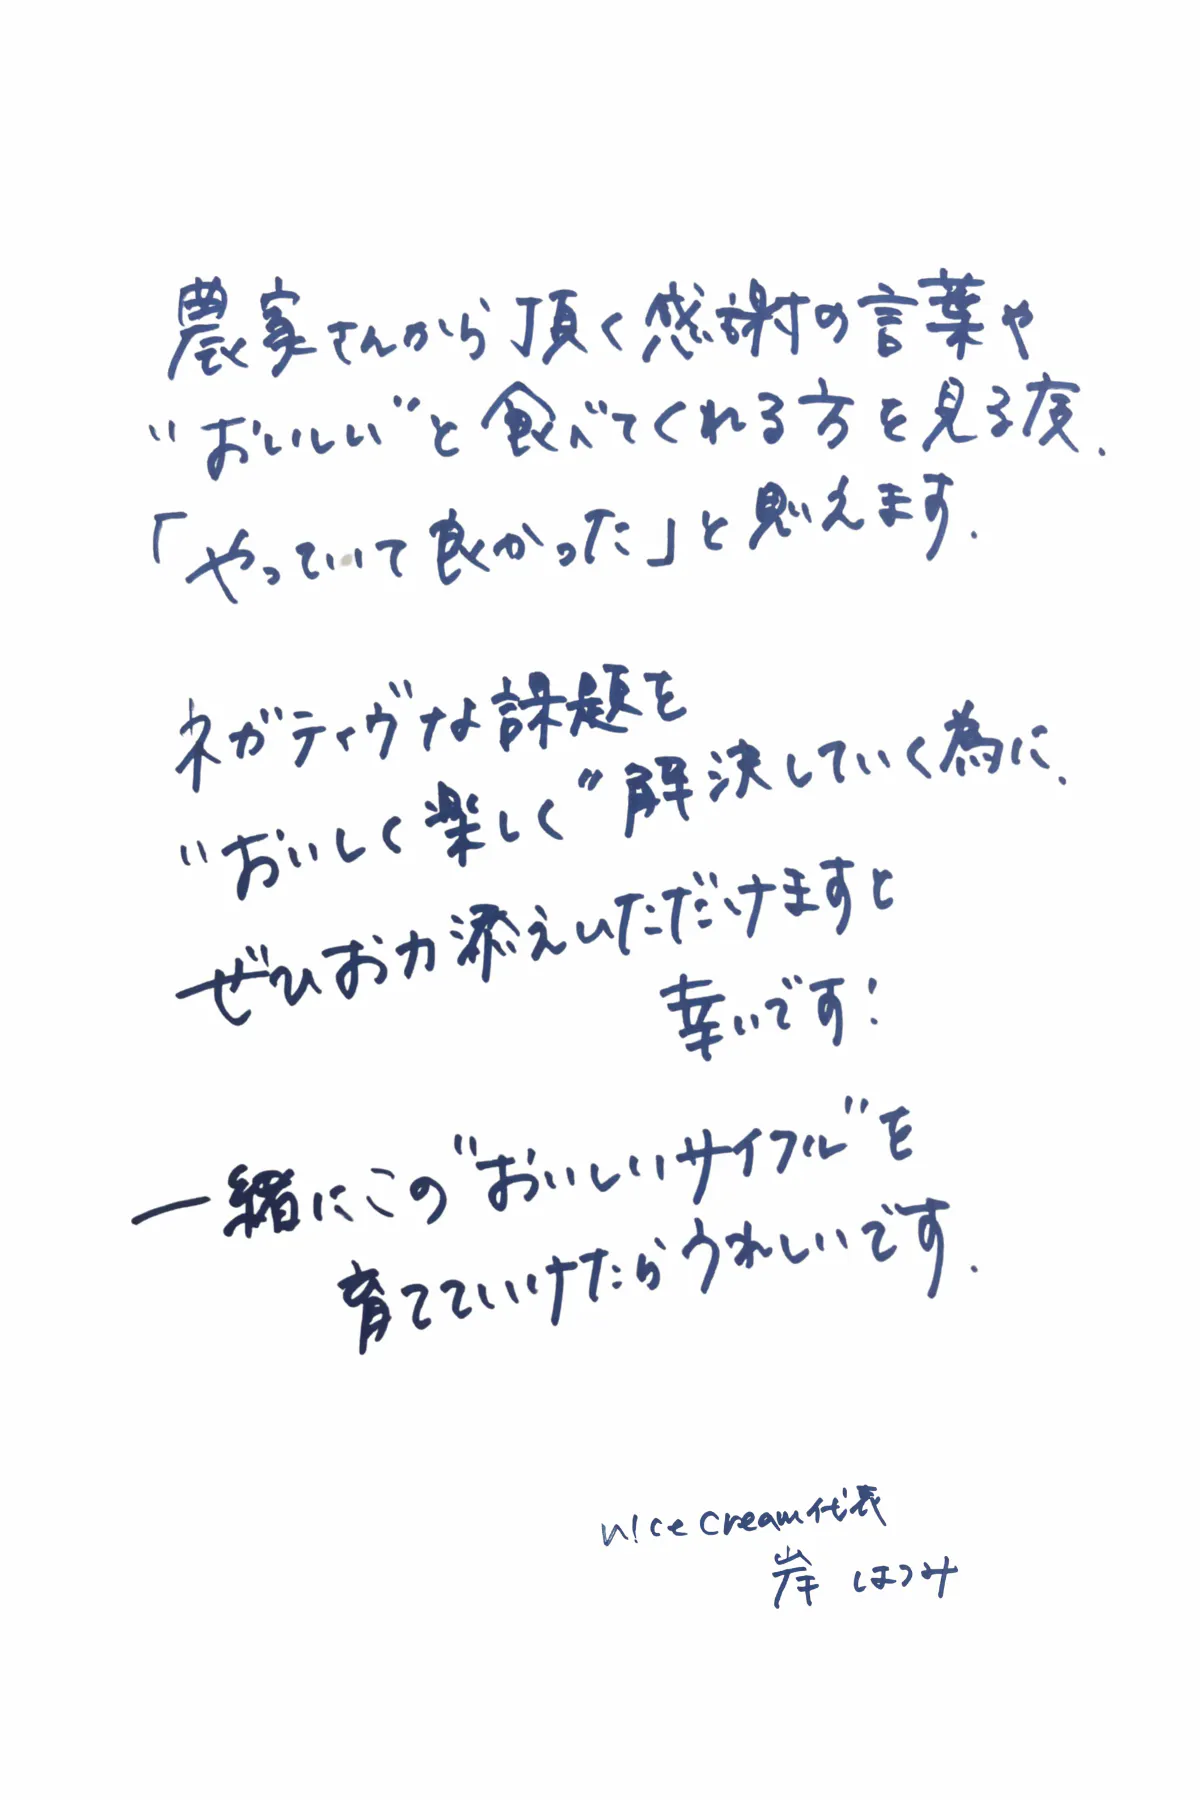 農家さんから頂く感謝の言葉や
"おいしい"と食べてくれる方を見る度、
「やっていて良かった」と思えます.
ネガティヴな課題を
"おいしく楽しく"解決していく為に、
ぜひお力添えいただけますと
幸いです!
一緒にこの"おいしいサイクル"を
育てていけたらうれしいです.
n!ce cream代表
岸 はつみ